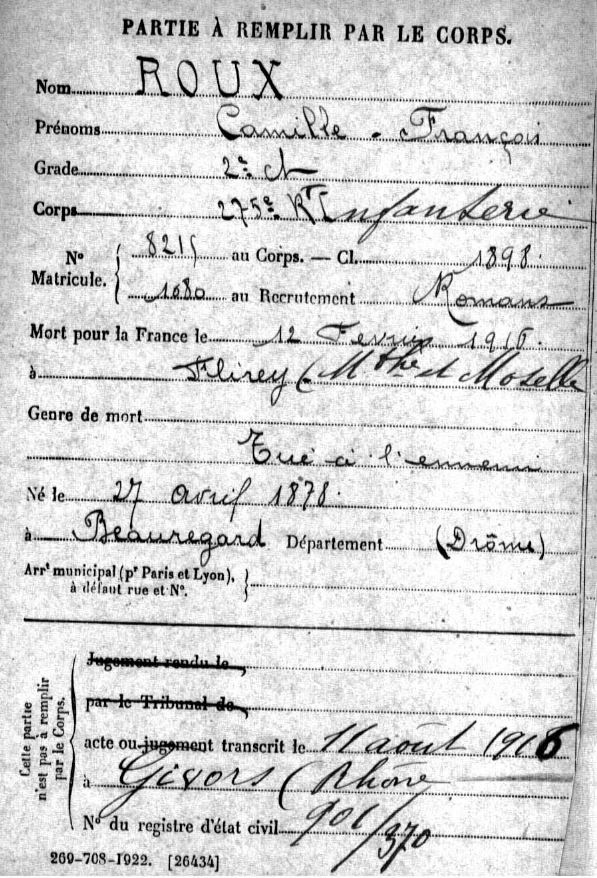 PARTIE À REMPLIR PAR LE CORPS.
Nom ROUX
Prénoms Camille - François
Grade 2e cl
Corps 275e RT Infanterie
No Matricule. 8215 au Corps. — Cl. 1898.
1080 au Recrutement Romans
Mort pour la France le 12 Fevrier 1916.
à Flirey (Mthe et Moselle
Genre de mort
Tué à l'ennemi
Né le 27 avril 1878.
à Beauregard Département (Drôme)
Arrt municipal (pr Paris et Lyon),
à défaut rue et No.
Cette partie
n'est pas à remplir
par le Corps.
Jugement rendu le
par le Tribunal de
acte ou jugement transcrit le 11 août 1916
à Givors (Rhone
No du registre d'état civil 901/370
269-708-1922. [26434]